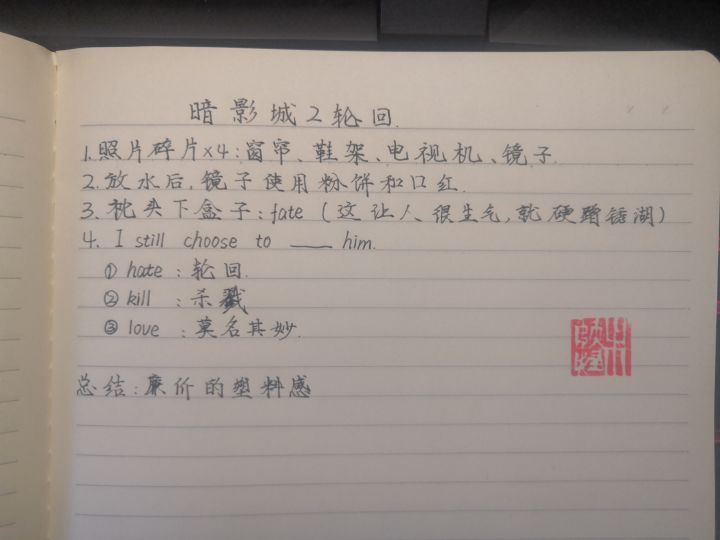 暗影城2轮回.
1.照片碎片×4:窗帘、鞋架、电视机、镜子.
2.放水后,镜子使用粉饼和口红.
3.枕头下盒子:fate(这让人很生气,就硬蹭锈湖)
4. I still choose to ___ him.
① hate:轮回.
② kill:杀戮
③ love:莫名其妙.
总结:廉价的塑料感